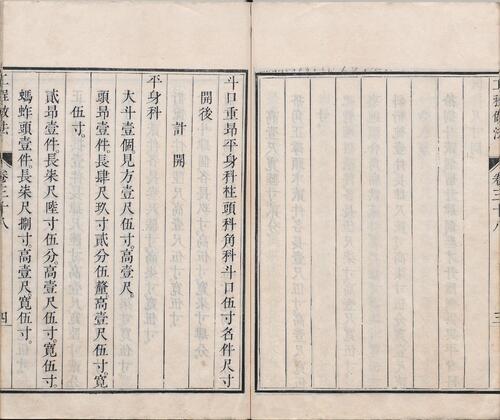 斗口重昂平身科柱頭科角科斗口伍寸名件尺寸
開後
計開
平身科
大斗壹個見方壹尺伍寸。高壹尺。
頭昂壹件。長肆尺玖寸貳分伍釐。高壹尺伍寸。寬
伍寸。
貳昂壹件。長柒尺陸寸伍分。高壹尺伍寸。寬伍寸。
螞蚱頭壹件。長柒尺捌寸。高壹尺。寬伍寸。
工程做法
卷三十八
四
工程做法
卷三十八
三